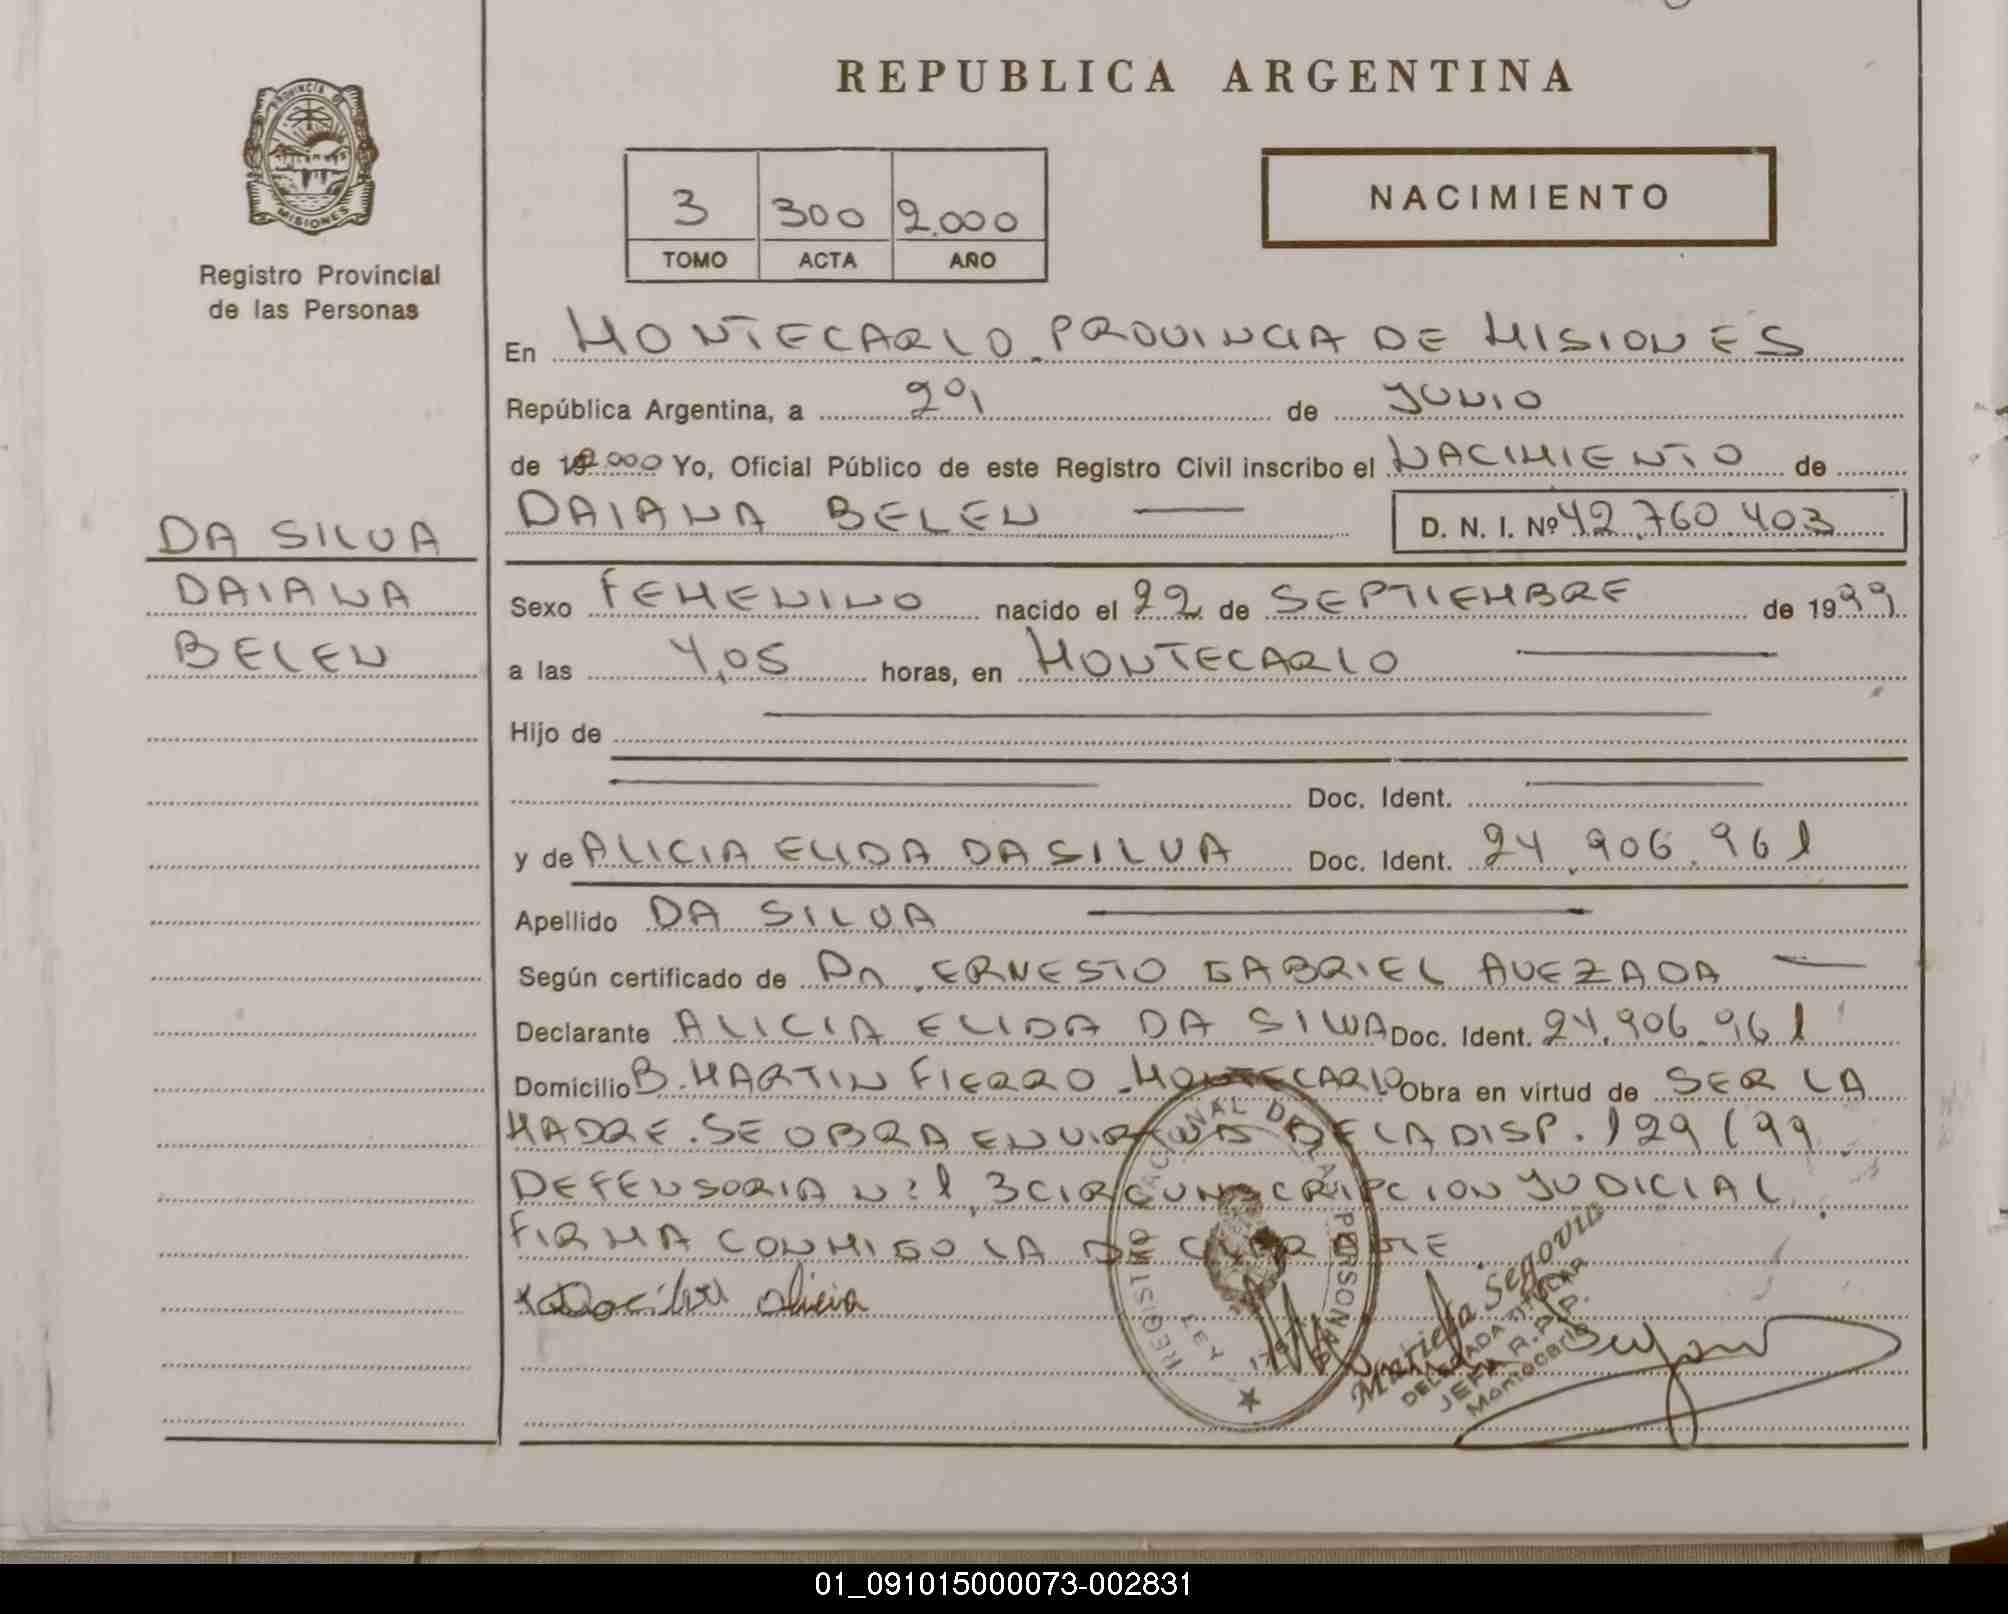 REPUBLICA ARGENTINA
PROVINCIA DE
MISIONES
Registro Provincial
de las Personas
3 300 2.000
TOMO ACTA AÑO
NACIMIENTO
En MONTECARLO. PROVINCIA DE MISIONES
República Argentina, a 201 de JUNIO
de 192.000 Yo, Oficial Público de este Registro Civil inscribo el NACIMIENTO de
DAIANA BELEN D. N. I. Nº 42.760.403
DA SILVA
DAIANA
BELEN
Sexo FEMENINO nacido el 22 de SEPTIEMBRE de 1999
a las 4,05 horas, en MONTECARLO
Hijo de
Doc. Ident.
y de ALICIA ELIDA DA SILVA Doc. Ident. 24.906.961
Apellido DA SILVA
Según certificado de Dr. ERNESTO GABRIEL AVEZADA
Declarante ALICIA ELIDA DA SILVA Doc. Ident. 24.906.961
Domicilio B. MARTIN FIERRO - MONTECARLO Obra en virtud de SER LA
MADRE. SE OBRA EN VIRTUD DE LA DISP. 129/99
DEFENSORIA Nº 1, 3 CIRCUNSCRIPCION JUDICIAL
FIRMA CONMIGO LA DECLARANTE
Da silva Alicia
REGISTRO NACIONAL DE LAS PERSONAS
LEY
Mariela Segovia
DELEGADA TITULAR
JEFA R.P.P.
Montecarlo
01_091015000073-002831